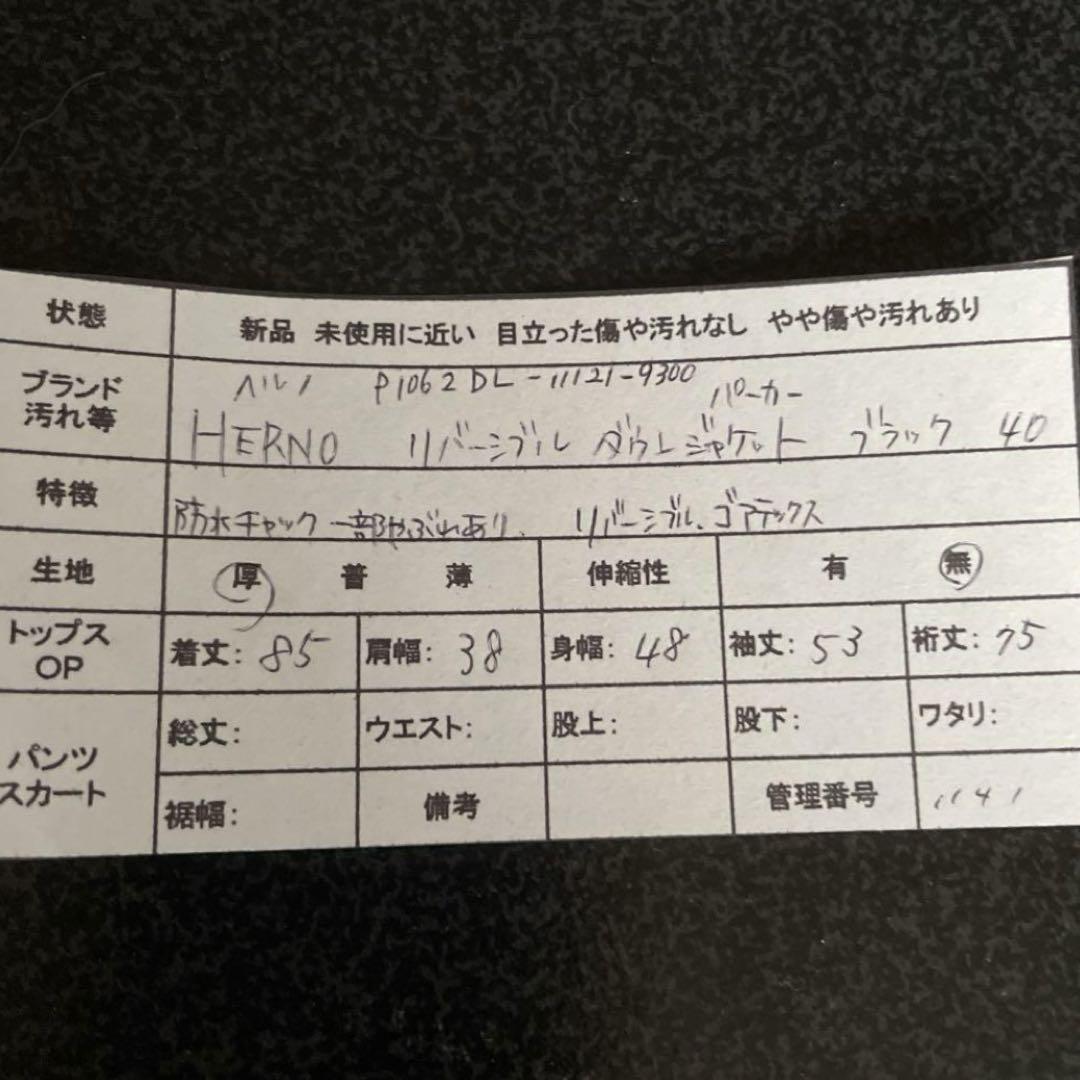 状態 新品 未使用に近い 目立った傷や汚れなし やや傷や汚れあり
ブランド 汚れ等 ヘルノ P1062DL-11121-9300 パーカー
HERNO リバーシブル ダウンジャケット ブラック 40
特徴 防水チャック一部やぶれあり. リバーシブル、ゴアテックス
生地 厚 普 薄 伸縮性 有 無
トップス OP 着丈: 85 肩幅: 38 身幅: 48 袖丈: 53 裄丈: 75
パンツ スカート 総丈: ウエスト: 股上: 股下: ワタリ:
裾幅: 備考 管理番号 1141